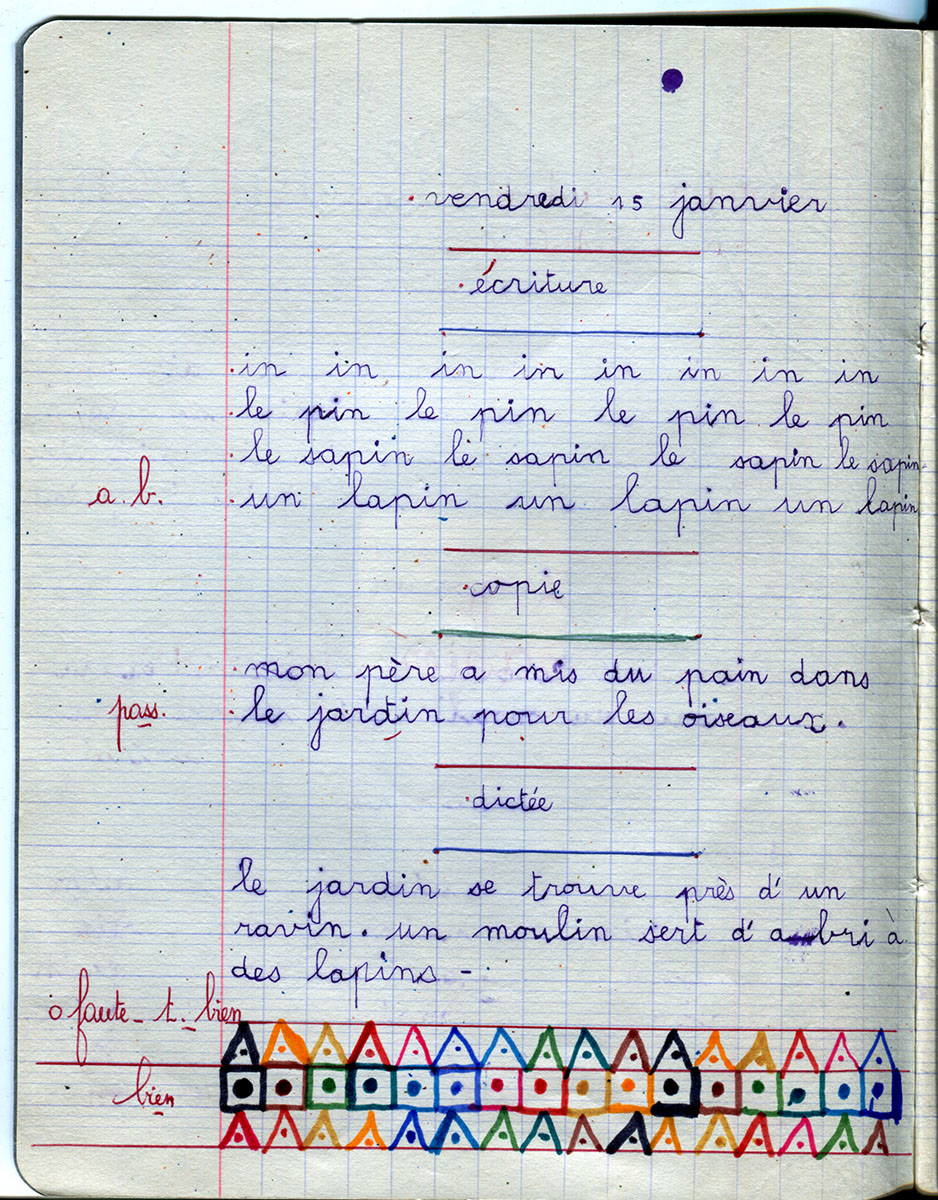 vendredi 15 janvier
écriture
in in in in in in in in
le pin le pin le pin le pin
le sapin le sapin le sapin le sapin
a.b.
un lapin un lapin un lapin
copie
mon père a mis du pain dans
pass.
le jardin pour les oiseaux.
dictée
le jardin se trouve près d'un
ravin. un moulin sert d'abri à
des lapins -
0 faute - t. bien
bien